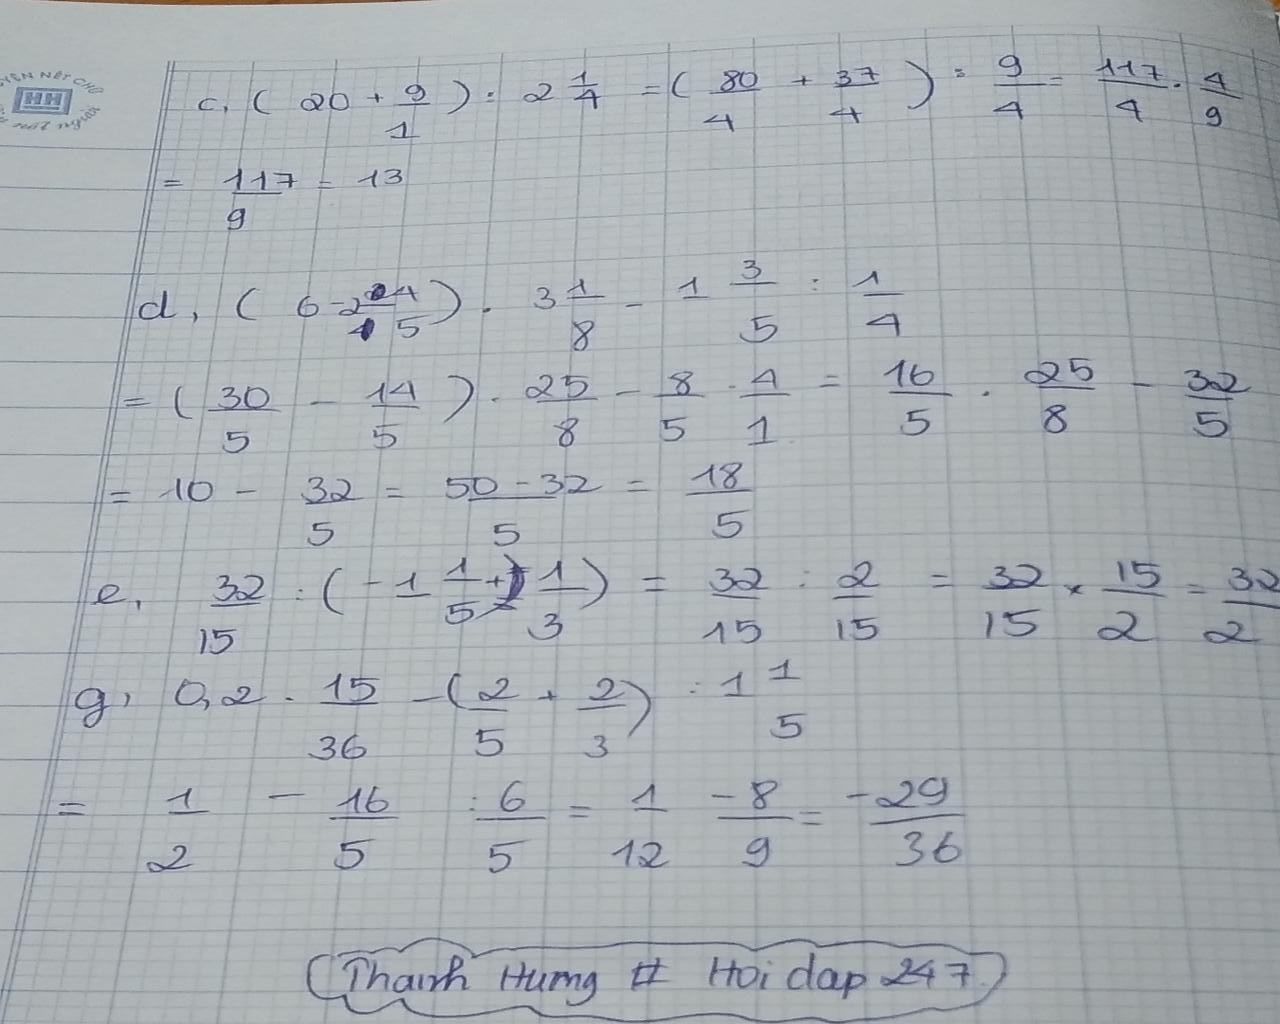 c, ( 20 + 9/1 ) : 2 1/4 = ( 80/4 + 37/4 ) : 9/4 = 117/4 . 4/9
= 117/9 = 13
d, ( 6 - 2 4/5 ) . 3 1/8 - 1 3/5 : 1/4
= ( 30/5 - 14/5 ) . 25/8 - 8/5 . 4/1 = 16/5 . 25/8 - 32/5
= 10 - 32/5 = 50 - 32/5 = 18/5
e, 32/15 : ( -1 1/5 + 1 1/3 ) = 32/15 : 2/15 = 32/15 × 15/2 = 32/2
g, 0,2 . 15/36 - ( 2/5 + 2/3 ) : 1 1/5
= 1/2 - 16/5 : 6/5 = 1/12 - 8/9 = -29/36
(Thanh Hưng # Hoi dap 247)